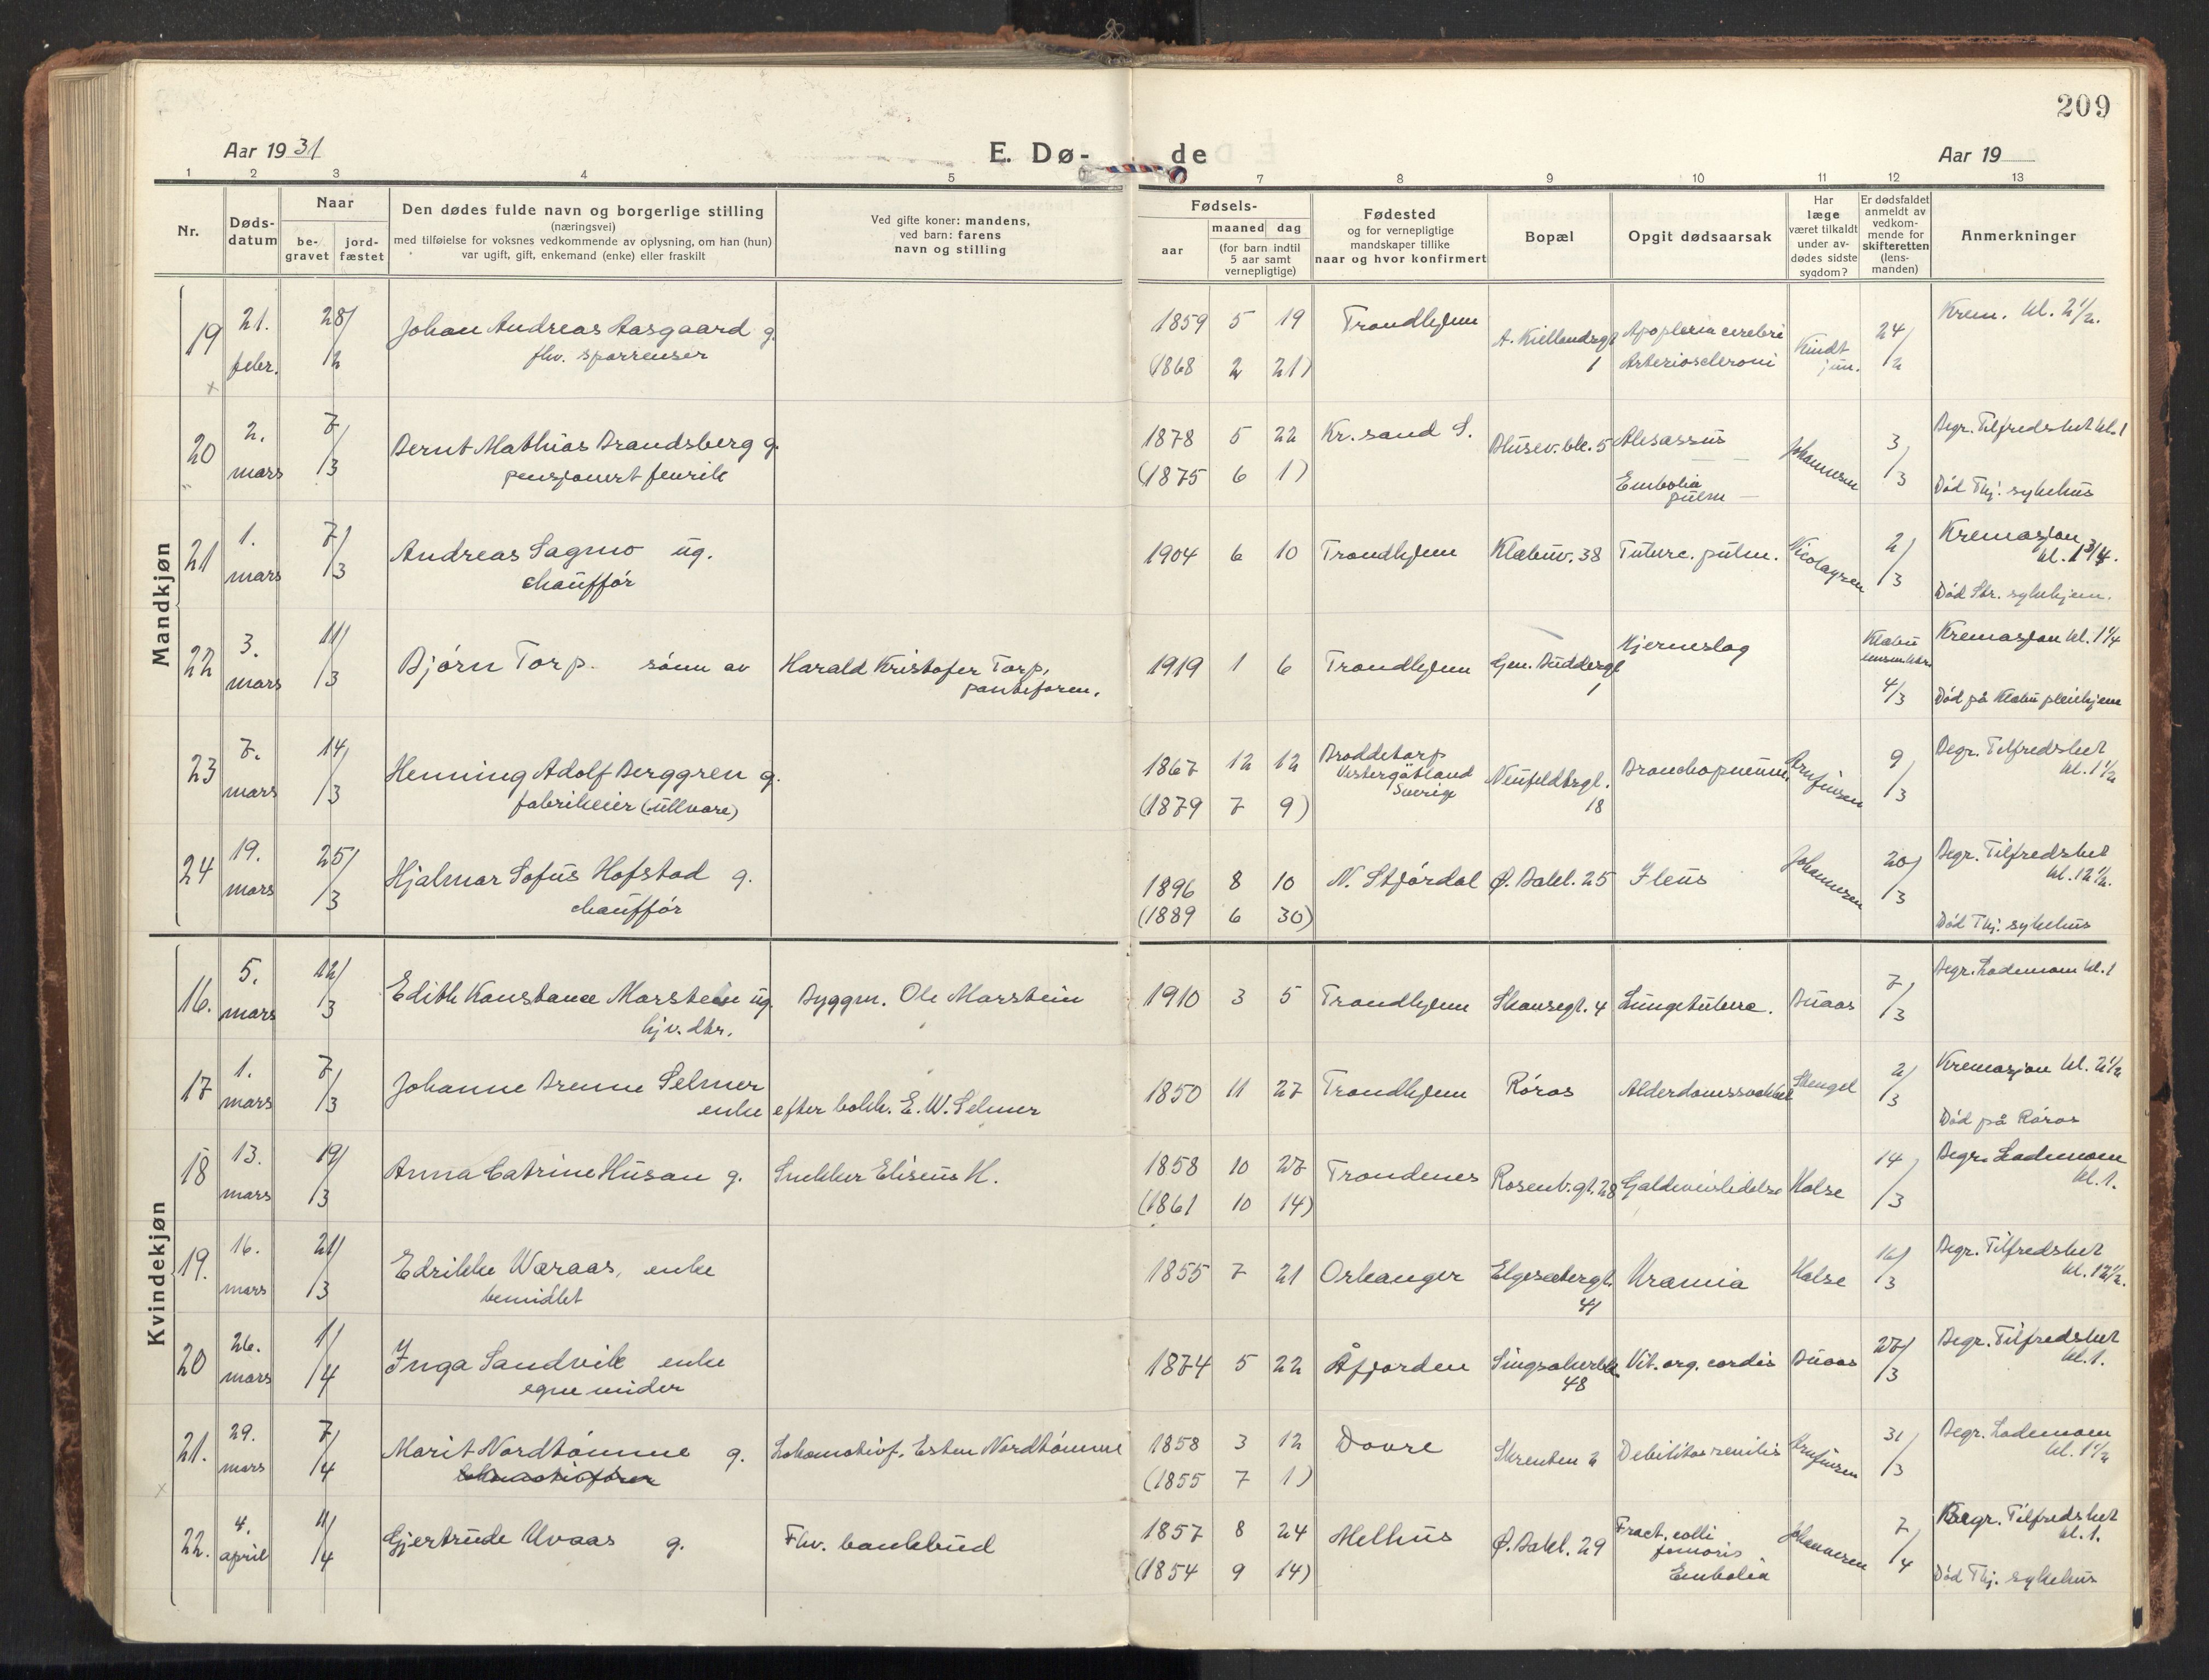 209
Aar 1931
E. Dø-
de
Aar 19
1 2 3 4 5 7 8 9 10 11 12 13
Nr.
Døds-
datum
Naar
be-
gravet
jord-
fæstet
Den dødes fulde navn og borgerlige stilling
(næringsvei)
med tilføielse for voksnes vedkommende av oplysning, om han (hun)
var ugift, gift, enkemand (enke) eller fraskilt
Ved gifte koner: mandens,
ved barn: farens
navn og stilling
Fødsels-
aar
maaned dag
(for barn indtil
5 aar samt
vernepligtige)
Fødested
og for vernepligtige
mandskaper tillike
naar og hvor konfirmert
Bopæl
Opgit dødsaarsak
Har
læge
været tilkaldt
under av-
dødes sidste
sygdom?
Er dødsfaldet
anmeldt av
vedkom-
mende for
skifteretten
(lens-
manden)
Anmerkninger
Mandkjøn
19 21. febr. 28/2 Johan Andreas Aasgaard g. 1859 5 19 Trondhjem A. Kiellandsgt 1 Apoplexia cerebri Kindt jun. 24/2 Krem. kl. 2 1/2.
fhv. sporrenser (1868 2 21) Arteriosclerosi
20 2. mars 7/3 Bernt Mathias Brandsberg g. 1878 5 22 Kr.sand S. Blusev. bk. 5 Johannesen 3/3 Begr. Tilfredshet kl. 1
pensjonert fenrik (1875 6 1) Embolia pulm Død Thj. sykehus
21 1. mars 7/3 Andreas Sagmo ug. 1904 6 10 Trondhjem Klæbuv. 38 Tuberc. pulm. Nicolaysen 2/3 Kremasjon kl. 1 3/4.
chauffør Død Str. sykehjem.
22 3. mars 11/3 Bjørn Torp. sønn av Harald Kristofer Torp, 1919 1 6 Trondhjem Gen. Buddesgt 1 Hjerneslag Klæbu 4/3 Kremasjon kl. 1 1/4
Død på Klæbu pleiehjem
23 7. mars 14/3 Henning Adolf Berggren g. 1867 12 12 Broddetorp Vestergötland Sverige Neufeldtsgt. 18 Bronchopneum. 9/3 Begr. Tilfredshet kl. 1 1/2
fabrikeier (ullvare) (1879 7 9)
24 19. mars 25/3 Hjalmar Sofus Hofstad g. 1896 8 10 N. Stjørdal Ø. Bakl. 25 Ileus Johannesen 20/3 Begr. Tilfredshet kl. 12 1/2.
chauffør (1889 6 30) Død Thj. sykehus
Kvindekjøn
16. 5. mars 12/3 Edith Konstance Marstein ug. Byggm. Ole Marstein 1910 3 5 Trondhjem Skansegt. 4 Lungetuberc. Buaas 7/3 Begr. Lademoen kl. 1
hjv. dtr.
17 1. mars 7/3 Johanne Brenne Selmer 1850 11 27 Trondhjem Røros Alderdomssvakhet Stengel 2/3 Kremasjon kl. 2 1/2
enke efter bokh. E. W. Selmer Død på Røros
18 13. mars 19/3 Anna Catrine Husan g. Snekker Eliseus H. 1858 10 27 Trondenes Rosenb. gt. 28 Galdeveislidelse Halse 14/3 Begr. Lademoen kl. 1.
(1861 10 14)
19. 16. mars 21/3 Edrikke Wæraas, enke 1855 7 21 Orkanger Elgesetergt. 41 Uræmia Halse 16/3 Begr. Tilfredshet kl. 12 1/2.
bemidlet
20 26. mars 1/4 Inga Sandvik enke 1874 5 22 Åfjorden Singsakerbk. 48 Vit. org. cordis Buaas 27/3 Begr. Tilfredshet kl. 1.
egne midler
21. 29. mars 7/4 Marit Nordtømme g. Lokomotivf. Esten Nordtømme 1858 3 12 Dovre Skrenten 2 Debilitas senilis 31/3 Begr. Lademoen kl. 1 1/2
lokomotivfører (1855 7 1)
22. 4. april 11/4 Gjertrude Uvaas g. Fhv. bankbud 1857 8 24 Melhus Ø. Bakl. 29 Fract. colli femoris Johannesen 7/4 Begr. Tilfredshet kl. 1.
(1854 9 14) Embolia Død Thj. sykehus